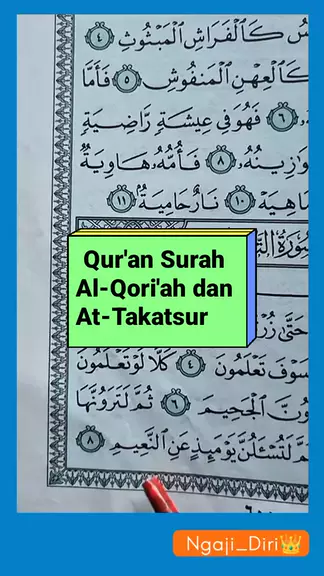 كَٱلْفَرَاشِ ٱلْمَبْثُوثِ ٤
كَٱلْعِهْنِ ٱلْمَنفُوشِ ٥ فَأَمَّا
٦ فَهُوَ فِي عِيشَةٍ رَّاضِيَةٍ
٨ فَأُمُّهُۥ هَاوِيَةٌ
١٠ نَارٌ حَامِيَةٌ ١١
Qur'an Surah
Al-Qori'ah dan
At-Takatsur
حَتَّىٰ
تَعْلَمُونَ ٤ كَلَّا لَوْ تَعْلَمُونَ
ٱلْجَحِيمَ ٦ ثُمَّ لَتَرَوُنَّهَا
لَتُسْـَٔلُنَّ يَوْمَئِذٍ عَنِ ٱلنَّعِيمِ ٨
Ngaji_Diri